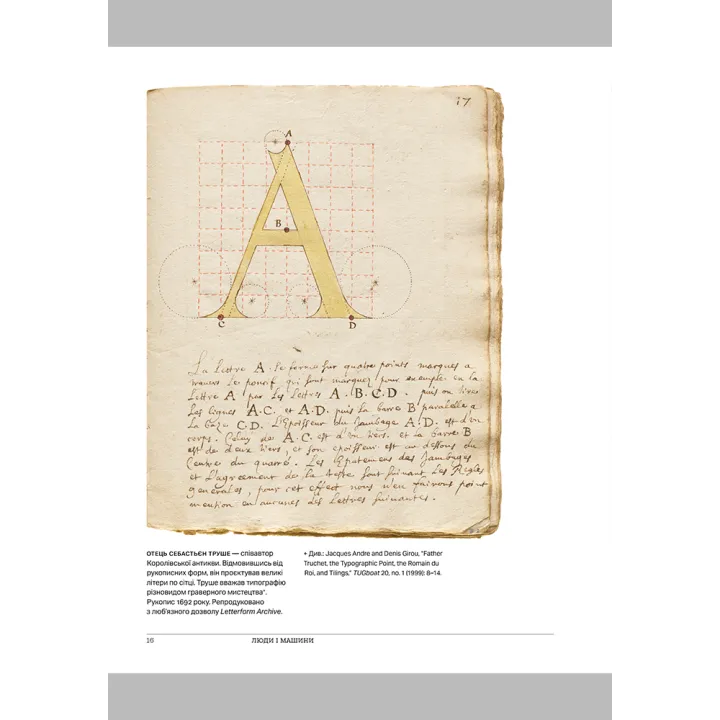 17
A
B
C
D
La Lettre A. Se forme sur quatre points marques a
travers le poncif qui sont marquez pour exemple en la
Lettre A par les Lettres A. B. C. D. puis on tire
Les lignes A.C. et A.D. puis la barre B parallele a
la baze C.D. L'Epoisseur du Jambage A.D. est d'un
corps. Celuy de A.C. est d'un tiers. et la barre B
est de deux tiers, et son epoisseur est au dessous du
Centre du quarré. Les Epatemens des Jambages
et L'agreement de la teste sont suivant les Regles
generales, pour cet effect nous n'en fairons point
mention en aucunes des Lettres suivantes.
ОТЕЦЬ СЕБАСТЬЄН ТРУШЕ — співавтор
Королівської антикви. Відмовившись від
рукописних форм, він проєктував великі
літери по сітці. Труше вважав типографію
різновидом граверного мистецтва*.
Рукопис 1692 року. Репродуковано
з люб'язного дозволу Letterform Archive.
* Див.: Jacques Andre and Denis Girou, "Father
Truchet, the Typographic Point, the Romain du
Roi, and Tilings," TUGboat 20, no. 1 (1999): 8–14.
16
ЛЮДИ І МАШИНИ